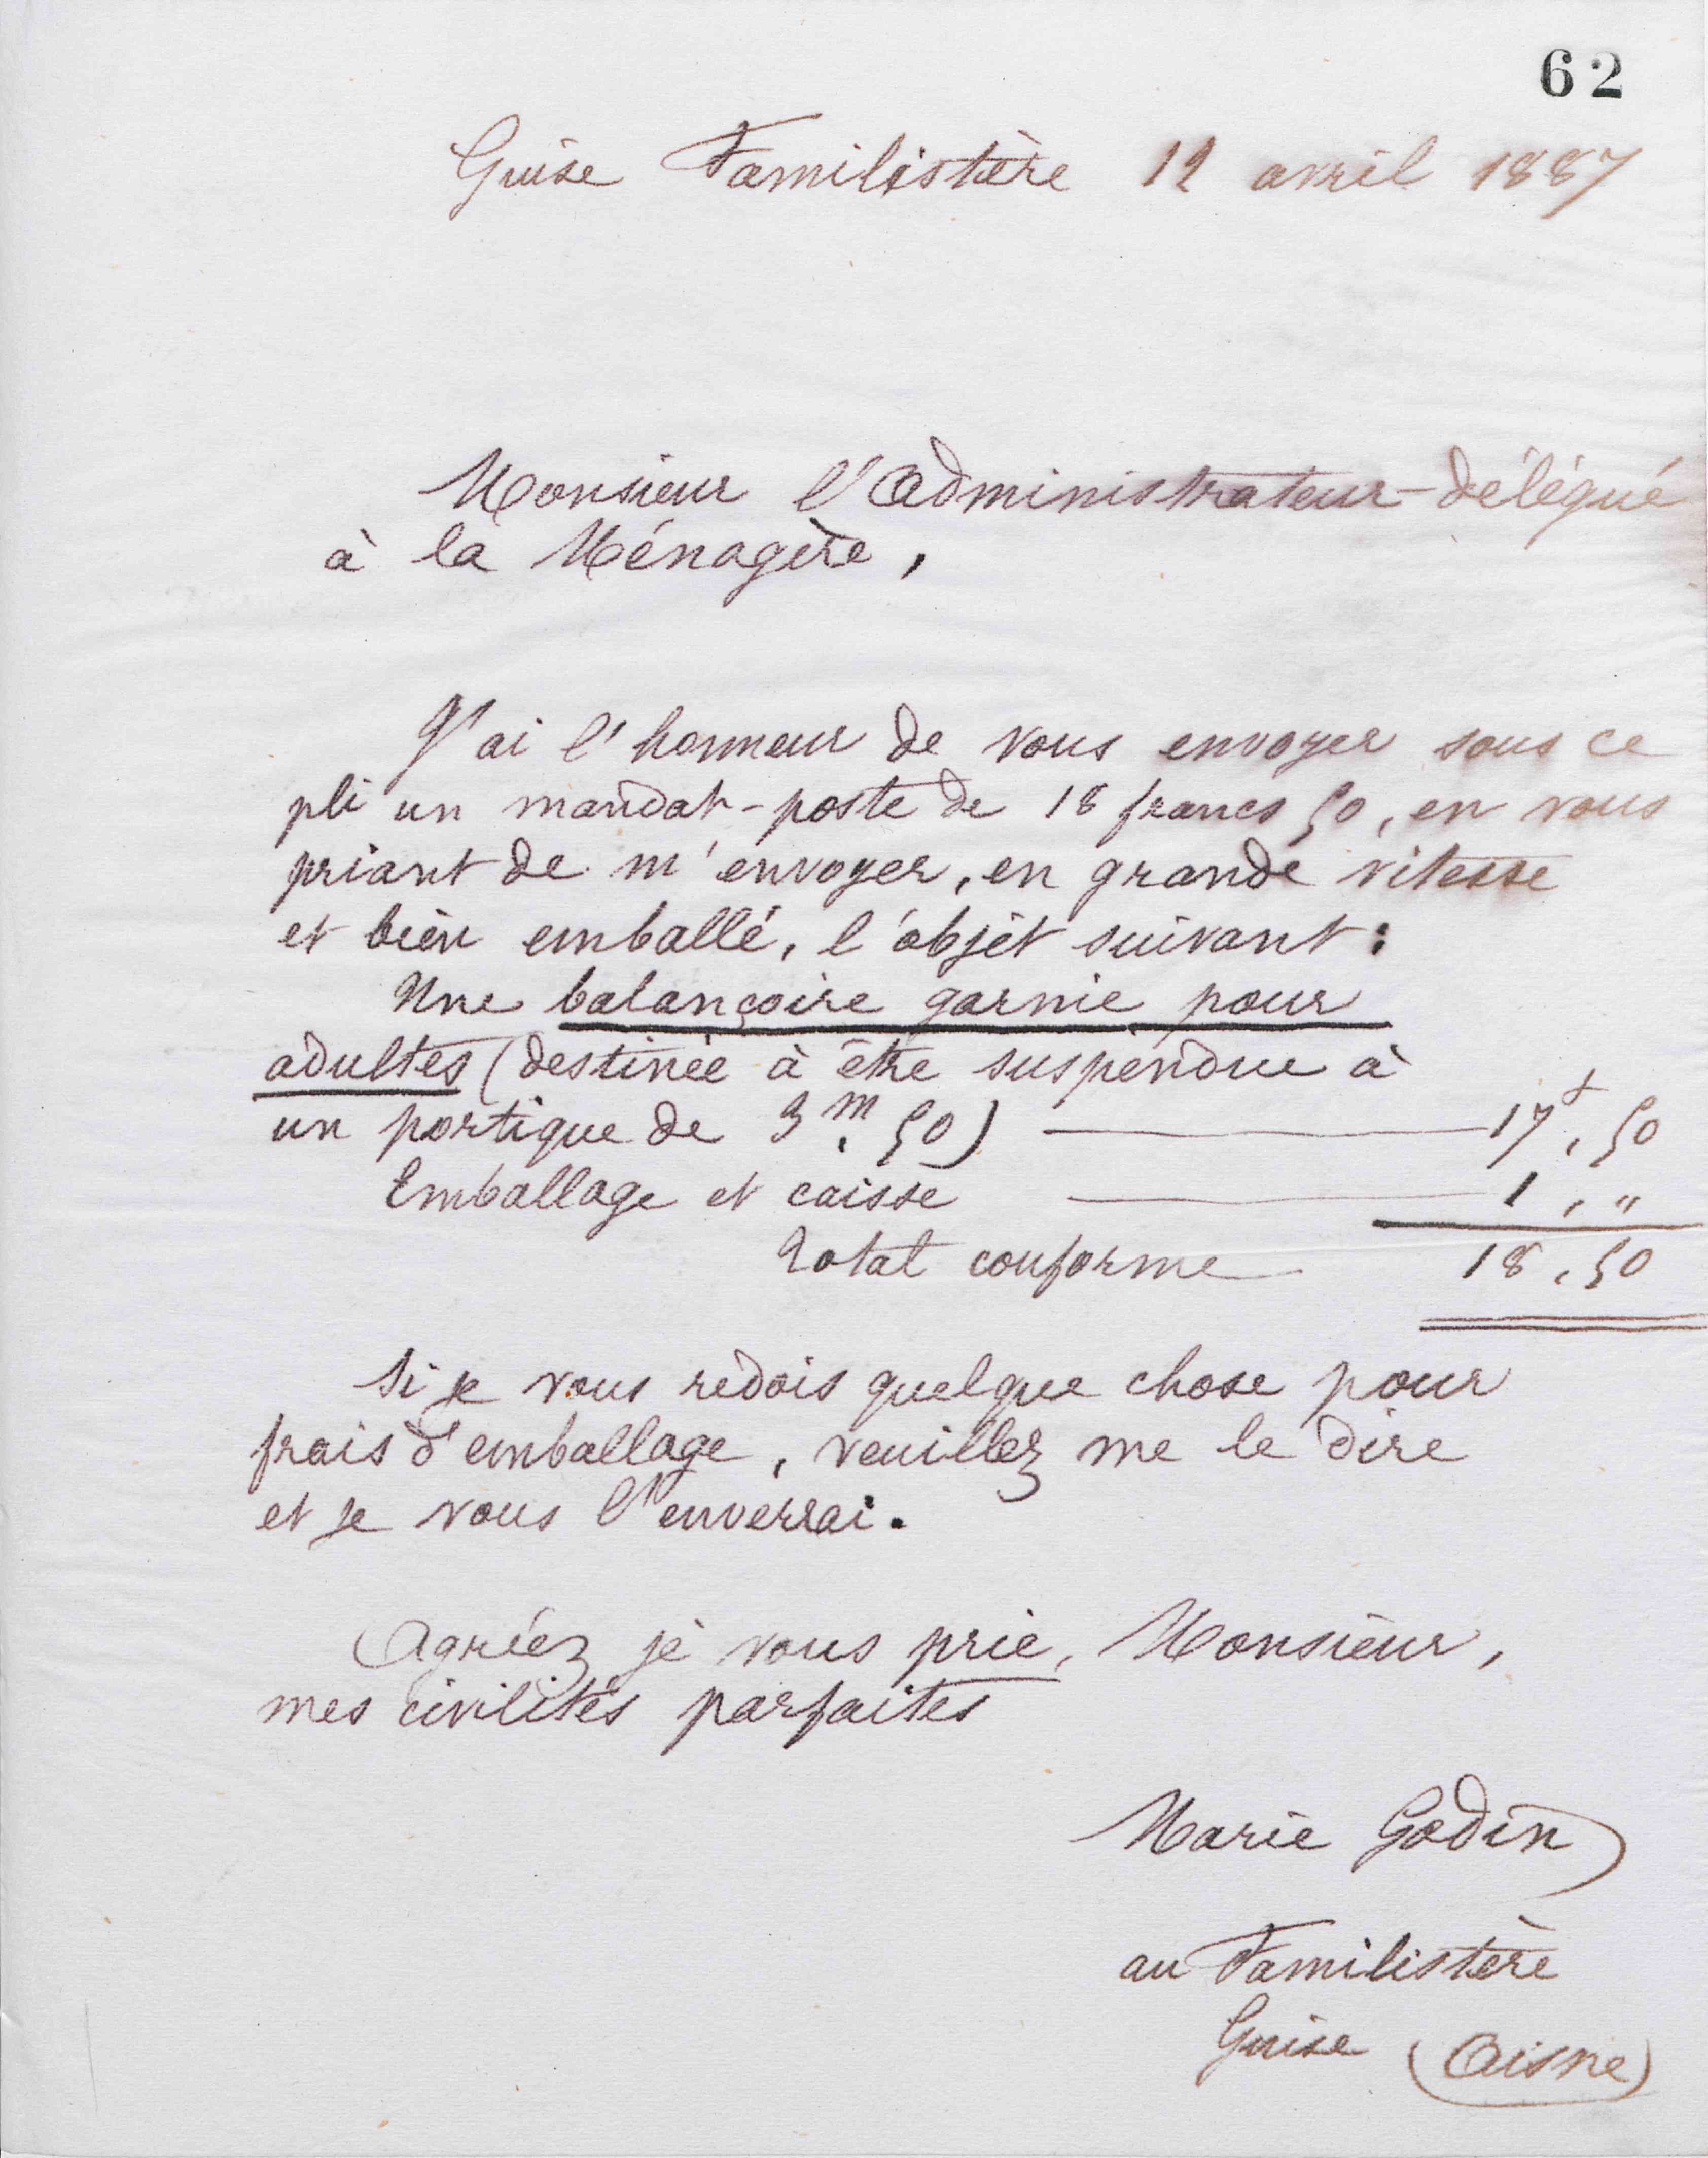 62
Guise Familistère 12 avril 1887
Monsieur l'administrateur-délégué
à la Ménagère,
J'ai l'honneur de vous envoyer sous ce
pli un mandat-poste de 18 francs 50, en vous
priant de m'envoyer, en grande vitesse
et bien emballé, l'objet suivant :
Une balançoire garnie pour
adultes (destinée à être suspendue à
un portique de 3m,50) — 17f,50
Emballage et caisse — 1,"
Total conforme — 18,50
Si je vous redois quelque chose pour
frais d'emballage, veuillez me le dire
et je vous l'enverrai.
Agréez je vous prie, Monsieur,
mes civilités parfaites
Marie Godin
au Familistère
Guise (Aisne)